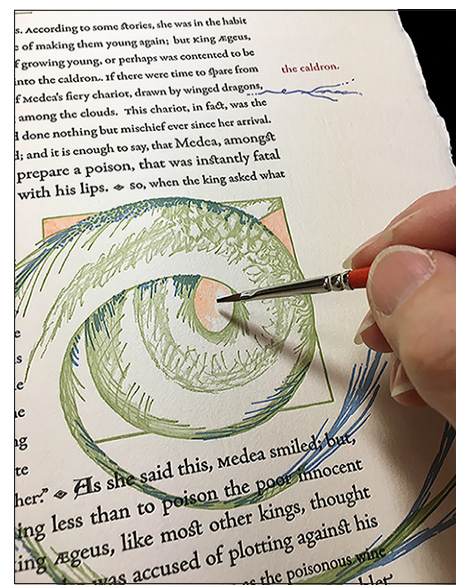 s. According to some stories, she was in the habit
e of making them young again; but King Ægeus,
f growing young, or perhaps was contented to be
into the caldron. If there were time to spare from
the caldron.
f Medea's fiery chariot, drawn by winged dragons,
among the clouds. This chariot, in fact, was the
d done nothing but mischief ever since her arrival.
d; and it is enough to say, that Medea, amongst
prepare a poison, that was instantly fatal
with his lips. So, when the king asked what
e
s
le
ne
ng
te
her." As she said this, Medea smiled; but,
ing less than to poison the poor innocent
ing Ægeus, like most other kings, thought
was accused of plotting against his
as the poisonous wine